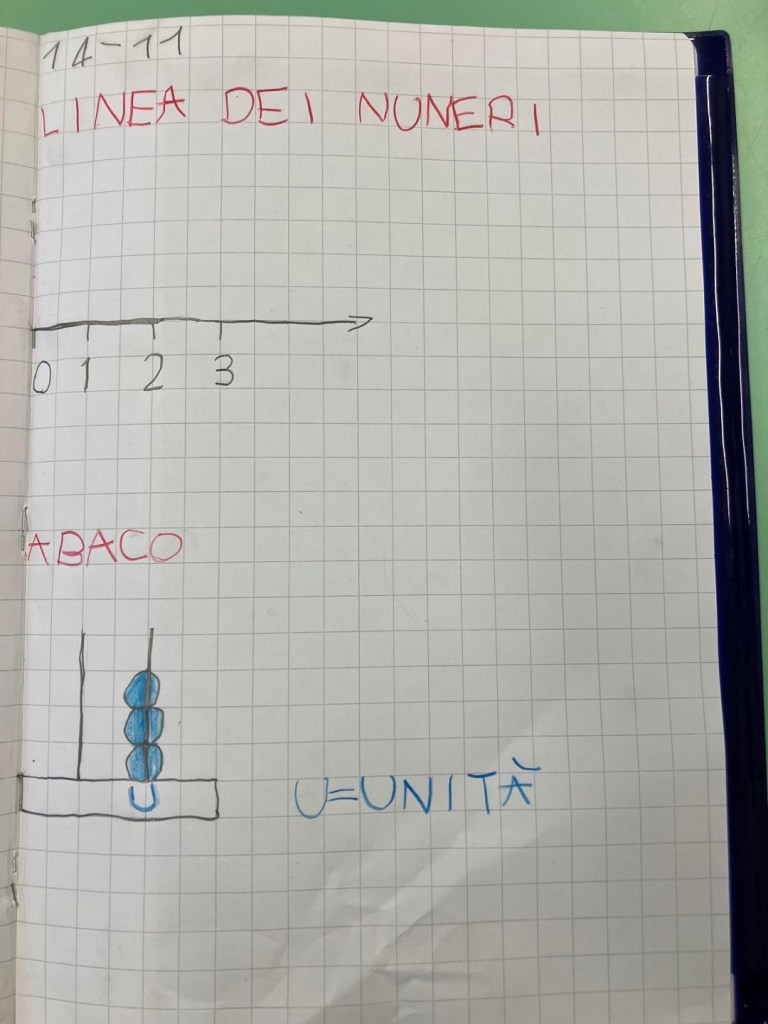 14-11
LINEA DEI NUNERI
0 1 2 3
ABACO
U
U=UNITÀ